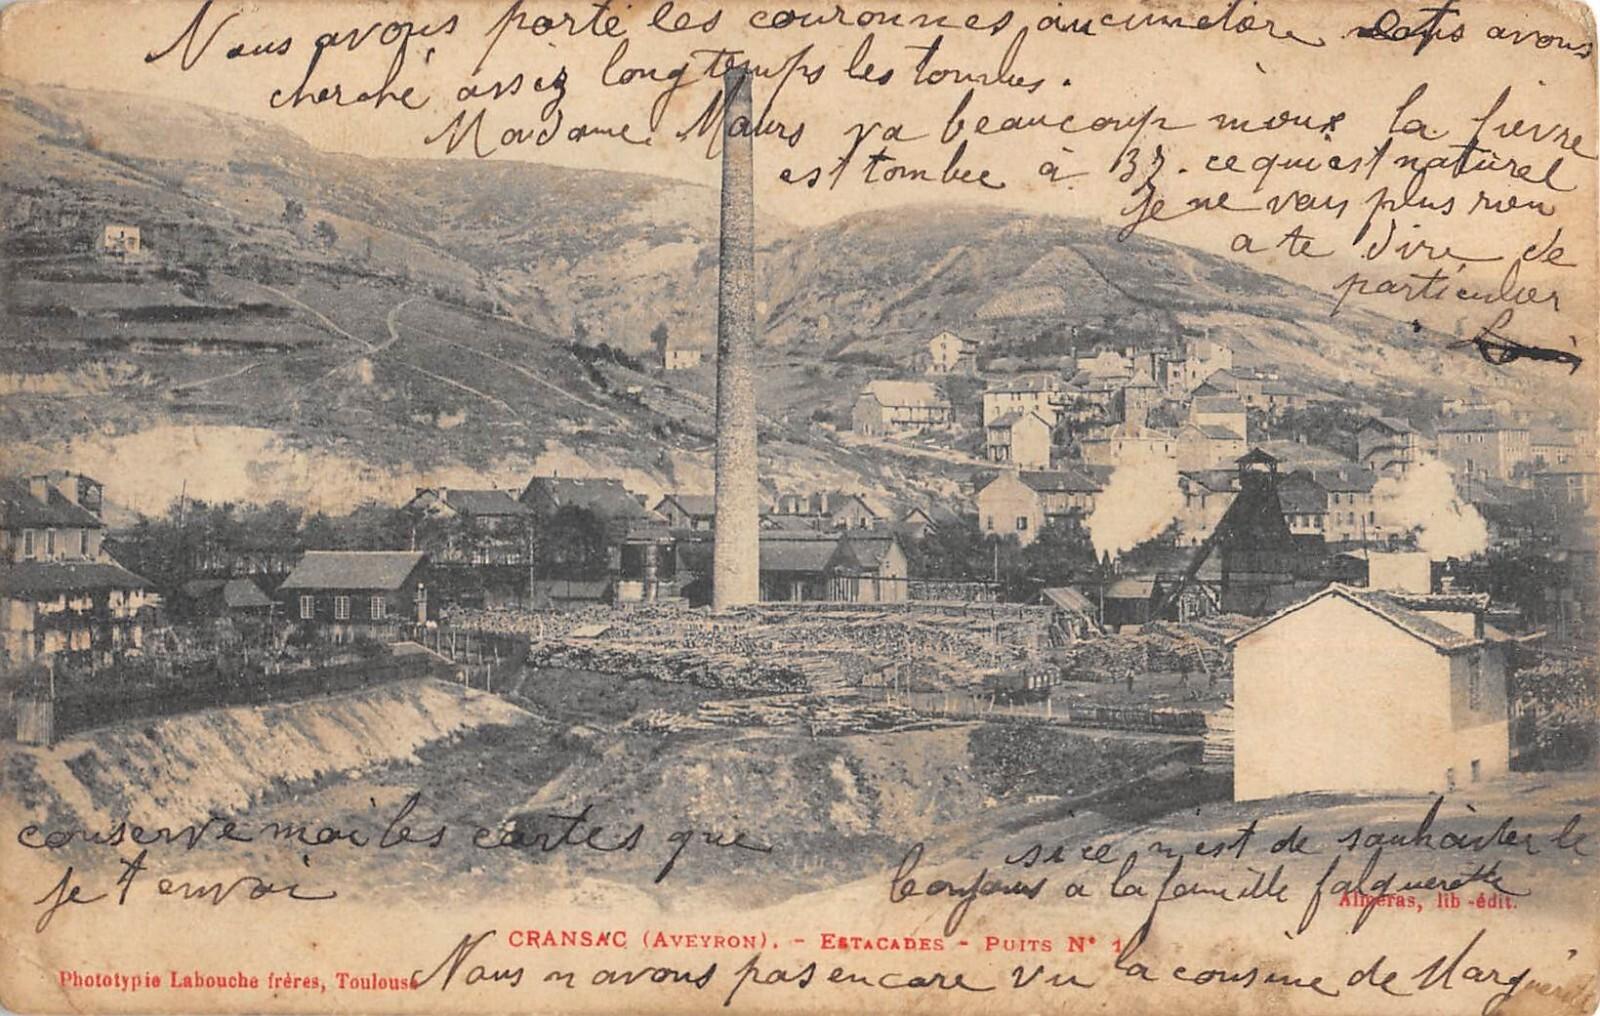 Nous avons porté les couronnes au cimetère nous avons
cherché assez longtemps les tombes.
Madame Maurs va beaucoup mieux la fièvre
est tombee à 37. ce qui est naturel
Je ne vais plus rien
a te dire de
particulier
conserve moi les cartes que
je t envoi
si ce n'est de souhaiter le
bonjours a la famille falguerette
Alméras, lib-édit.
CRANSAC (AVEYRON). - ESTACADES - PUITS N° 1
Phototypie Labouche frères, Toulouse
Nous n avons pas encore vu la cousine de Marguerite